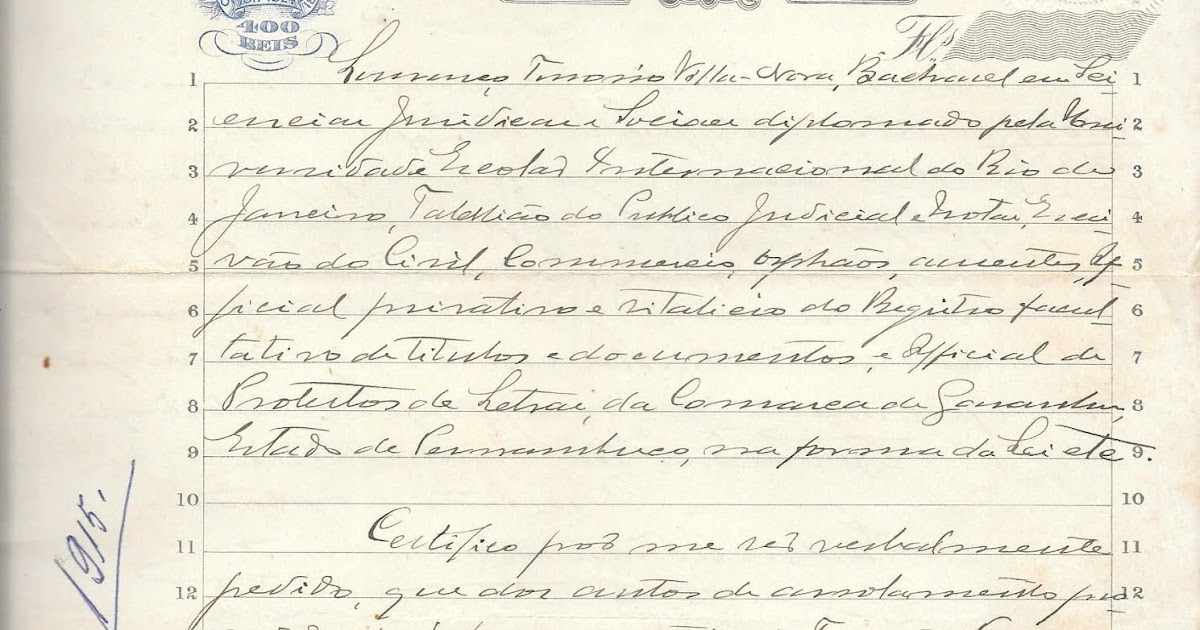 400
REIS
Fls
1 Lourenço Tenorio Villa-Nova, Bacharel em Sci 1
2 encias Juridicas e Sociaes diplomado pela Uni 2
3 versidade Escolar Internacional do Rio de 3
4 Janeiro, Tabellião do Publico Judicial e Notas, Escri 4
5 vão do Civil, Commercio, orphãos, ausentes, Of 5
6 ficial privativo e vitalicio do Registro facul 6
7 tativo de titulos e documentos, e Official de 7
8 Protestos de Letras, da Comarca de Garanhuns, 8
9 Estado de Pernambuco, na forma da Lei etc. 9
10 10
11 Certifico por me ser verbalmente 11
12 pedido, que dos autos de arrolamento 12
1915.